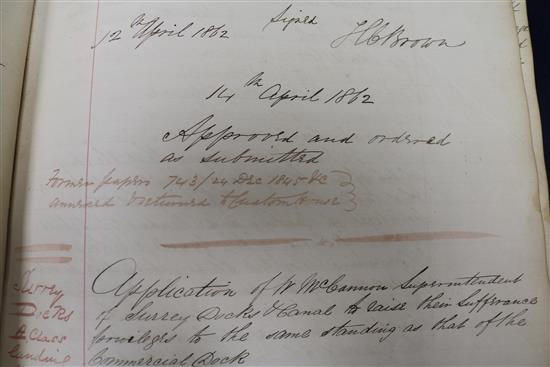 12th April 1862 Signed H C Brown
14th April 1862
Approved and ordered
as submitted
Former papers 743/24 Dec 1845 &c
annexed & returned to Custom House
Surrey
Docks
A Class
Landing
Application of W McCannon Superintendent
of Surrey Docks & Canal to raise their Sufferance
privileges to the same standing as that of the
Commercial Dock